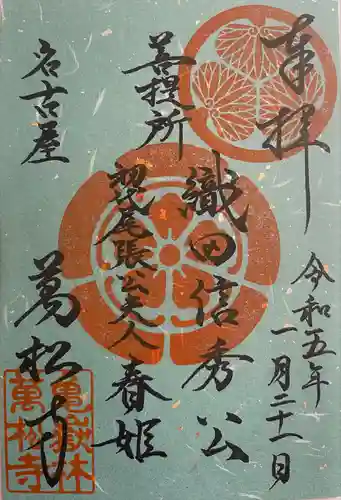 奉拝
令和五年
一月二十一日
菩提所
織田信秀公
初代尾張公夫人春姫
名古屋
萬松寺
亀嶽林
萬松寺